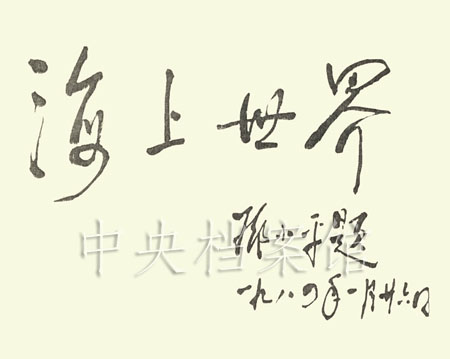 海上世界
邓小平题
中央档案馆
一九八四年一月廿六日